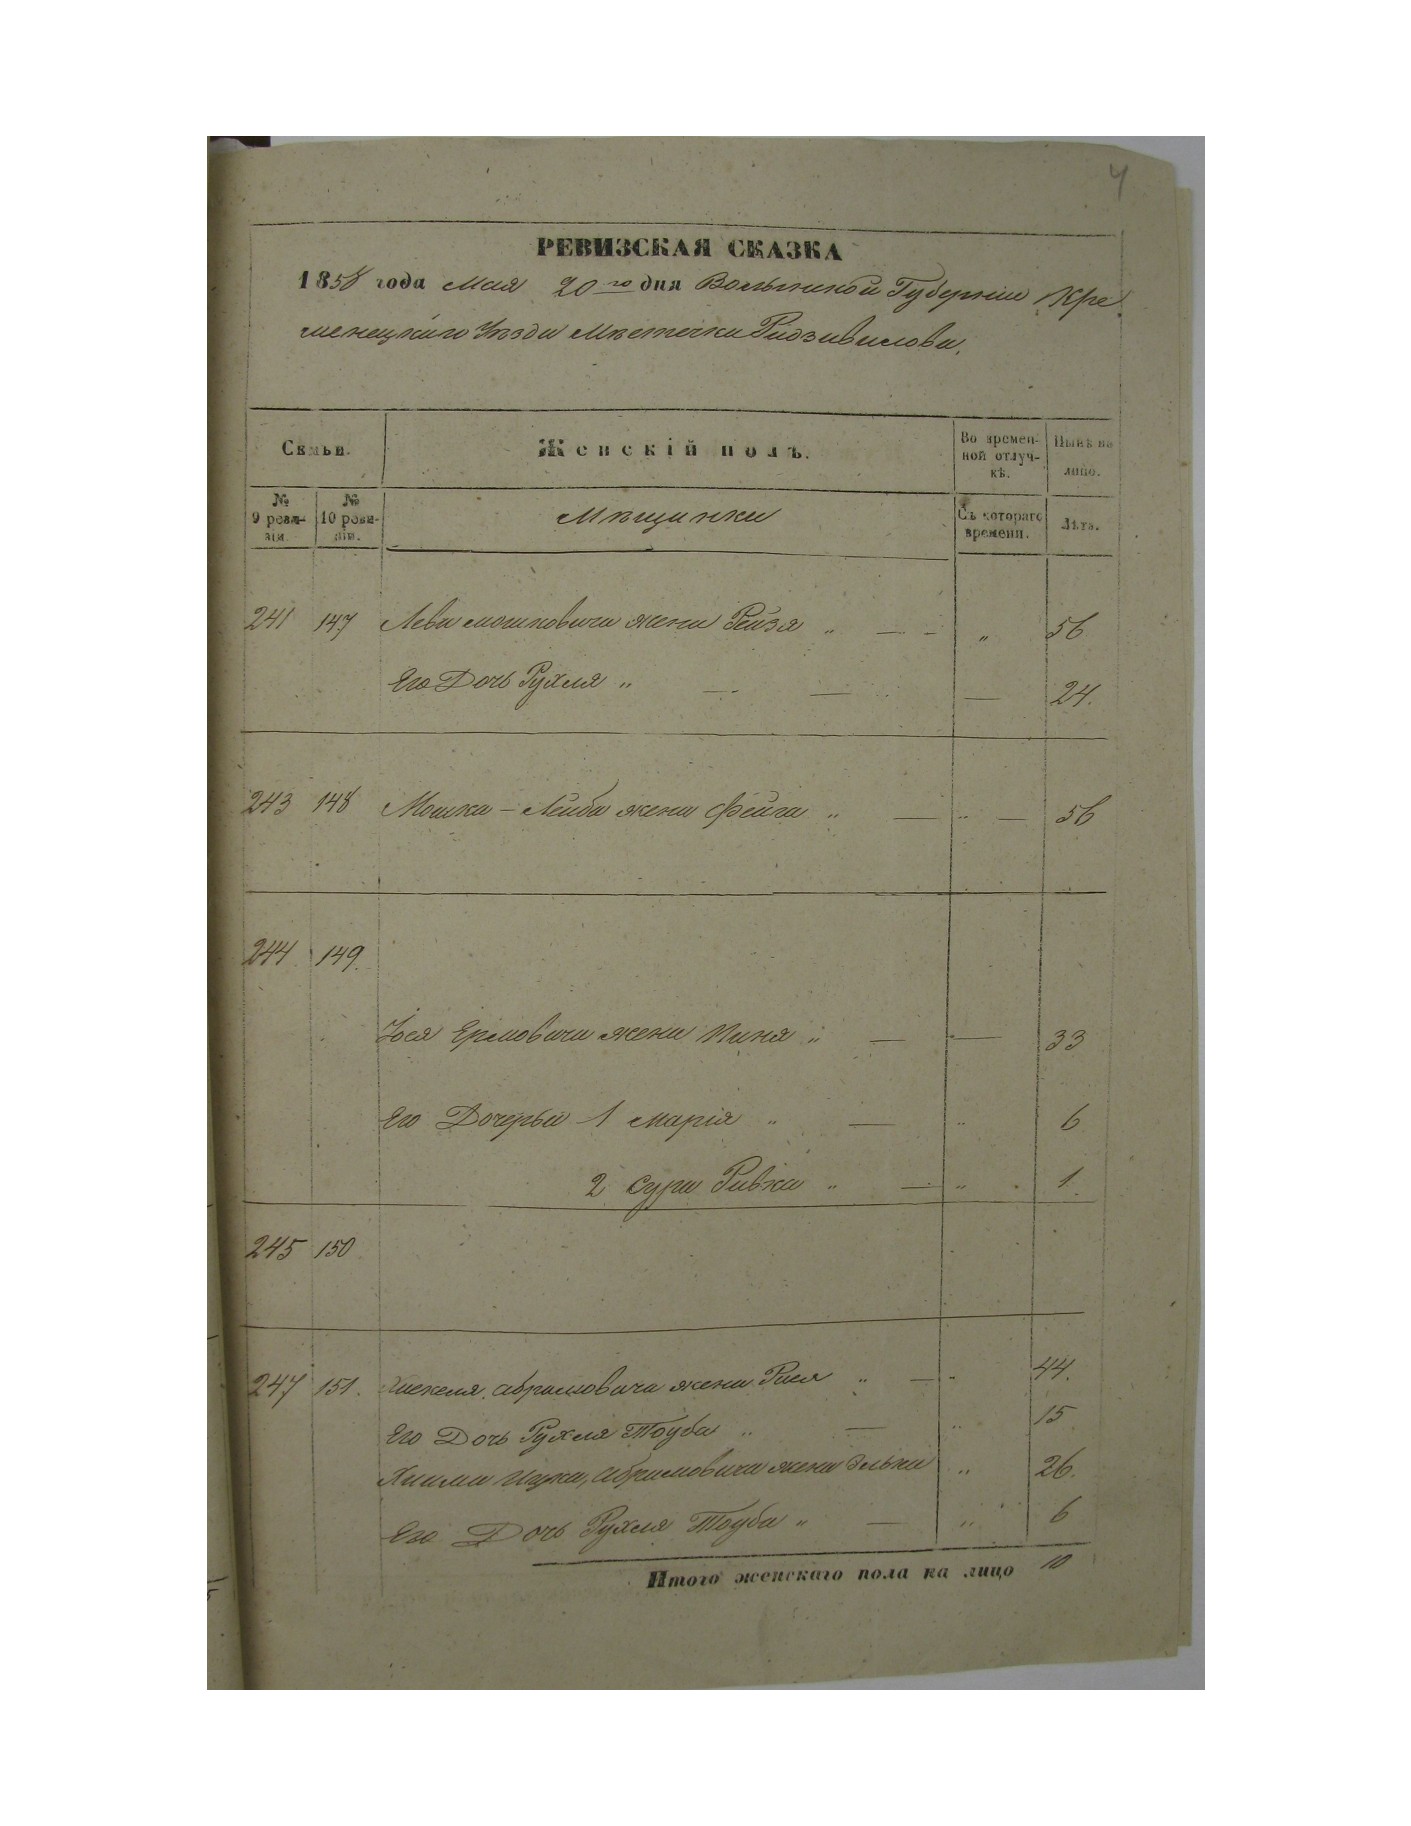 4
РЕВИЗСКАЯ СКАЗКА
1858 года Мая 20го дня Волынской Губерніи Кре-
менецкаго Уѣзда Мѣстечка Радзивилова.
Семьи. Женскій полъ. Во времен- Нынѣ на
ной отлуч- лицо.
кѣ.
№ № Мѣщанки Съ котораго Лѣта.
9 реви- 10 реви- времени.
зіи. зіи.
241 147 Лева Мошковича жена Рейзя „ — - „ 56
Его Дочь Рухля „ — — — 24.
243 148 Мошка - Лейба жена Фейга „ — „ — 56
244 149.
Іося Ермовича жена „ — — 33
Его Дочерьи 1 Марія „ — „ 6
2 Сура Ривка „ — „ 1.
245 150
247 151. Абрамовича жена Рася „ — „ 44.
Его Дочь Рухля Тоуба „ — „ 15
Абрамовича жена Элька „ 26.
Его Дочь Рухля Тоуба „ — „ 6
Итого женскаго пола на лицо 10